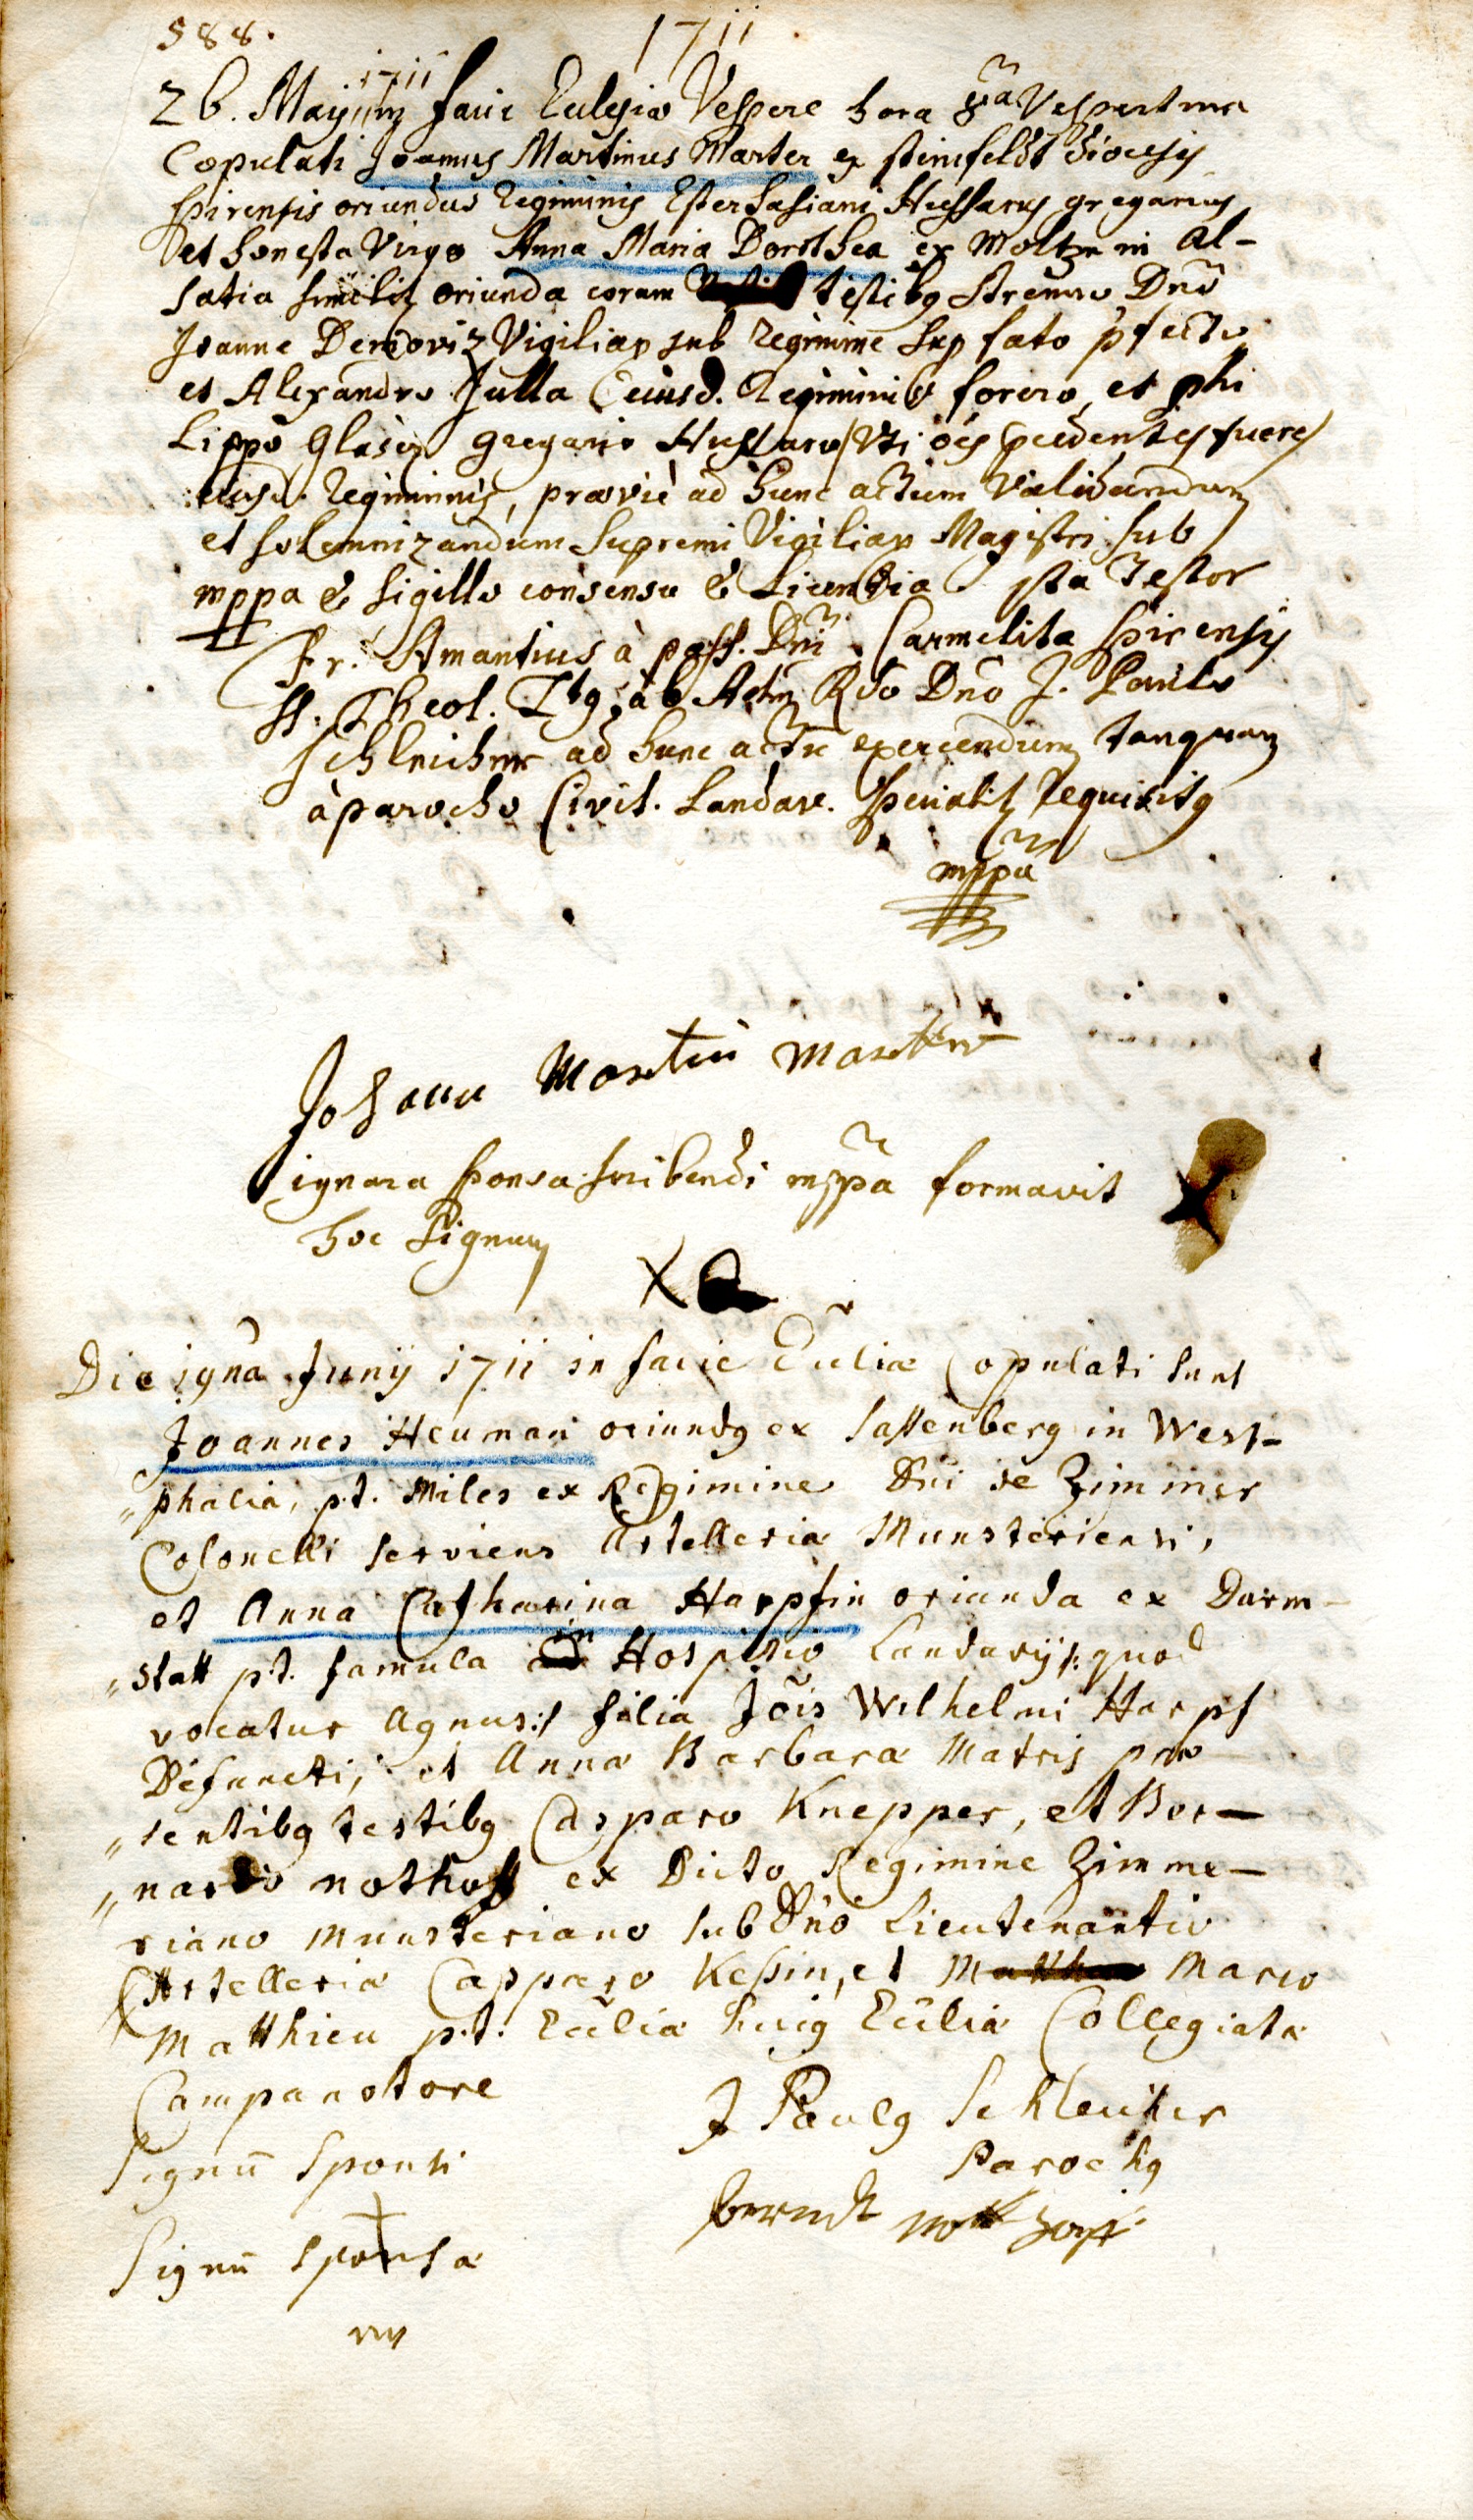 588.
1711
26. Maij 1711 in facie Eclesiæ Vespere hora 8va Vespertina
Copulati Joannes Martinus Marter ex steinfeldt diocesis
spirensis oriundus Regiminis Esterhasiani Hussarus gregarius
et honesta Virgo Anna Maria Dorothea ex Moltzn in Al-
satia similitr oriunda coram testibg strenuo Dno
Joanne Vigiliar sub regimine sup fato pfecto
et Alexandro Julla Eiusd. Regiminis forero, et phi
Lippo Glaser gregario Hussaro / Vti oes pcedentes fuere /
eiusd. Regiminis, prævie ad hunc actum Validandum
et solemnizandum supremi Vigiliar Magistri sub
mppa & sigillo consensu & Licentia ista Testor
Fr. Amantius à pass. Dni Carmelita spirensis
SS. Theol. ab Adm Rdo Dno J. Paulo
schleicher ad hunc actu exercendum tanquam
à parocho Civit. Landav. specialitr requisitg
mppa
Johann Martin Marter
ignara sponsa scribendi mppa formavit
hoc signum
X
Die 19na Junij 1711 in facie Eccliæ Copulati sunt
Joannes Heuman oriundg ex Sassenberg in West-
„phalia, p.t. Miles ex Regimine Dni de Zimmer
Colonelli serviens Artelleria Munsteriensi,
et Anna Catharina Harpfin oriunda ex Darm-
„statt p.t. famula in Hospitio Landavij /: quod
vocatur Agnus :/ filia Jois Wilhelmi Harpf
Defuncti, et Anna Barbara Matris præ
„sentibg testibg Casparo Knepper, et Ber-
„nardo nothoff ex Dicto Regimine Zimme-
riano Munsteriano sub Dno Lieutenantio
Artelleria Capparo Keßin, et Marco
Matthieu p.t. Eccliæ huig Eccliæ Collegiatæ
Campanatore
J Paulg Schleicher
Parochg
Signu Sponsi
+
berndt nott hoff
Signu sponsæ